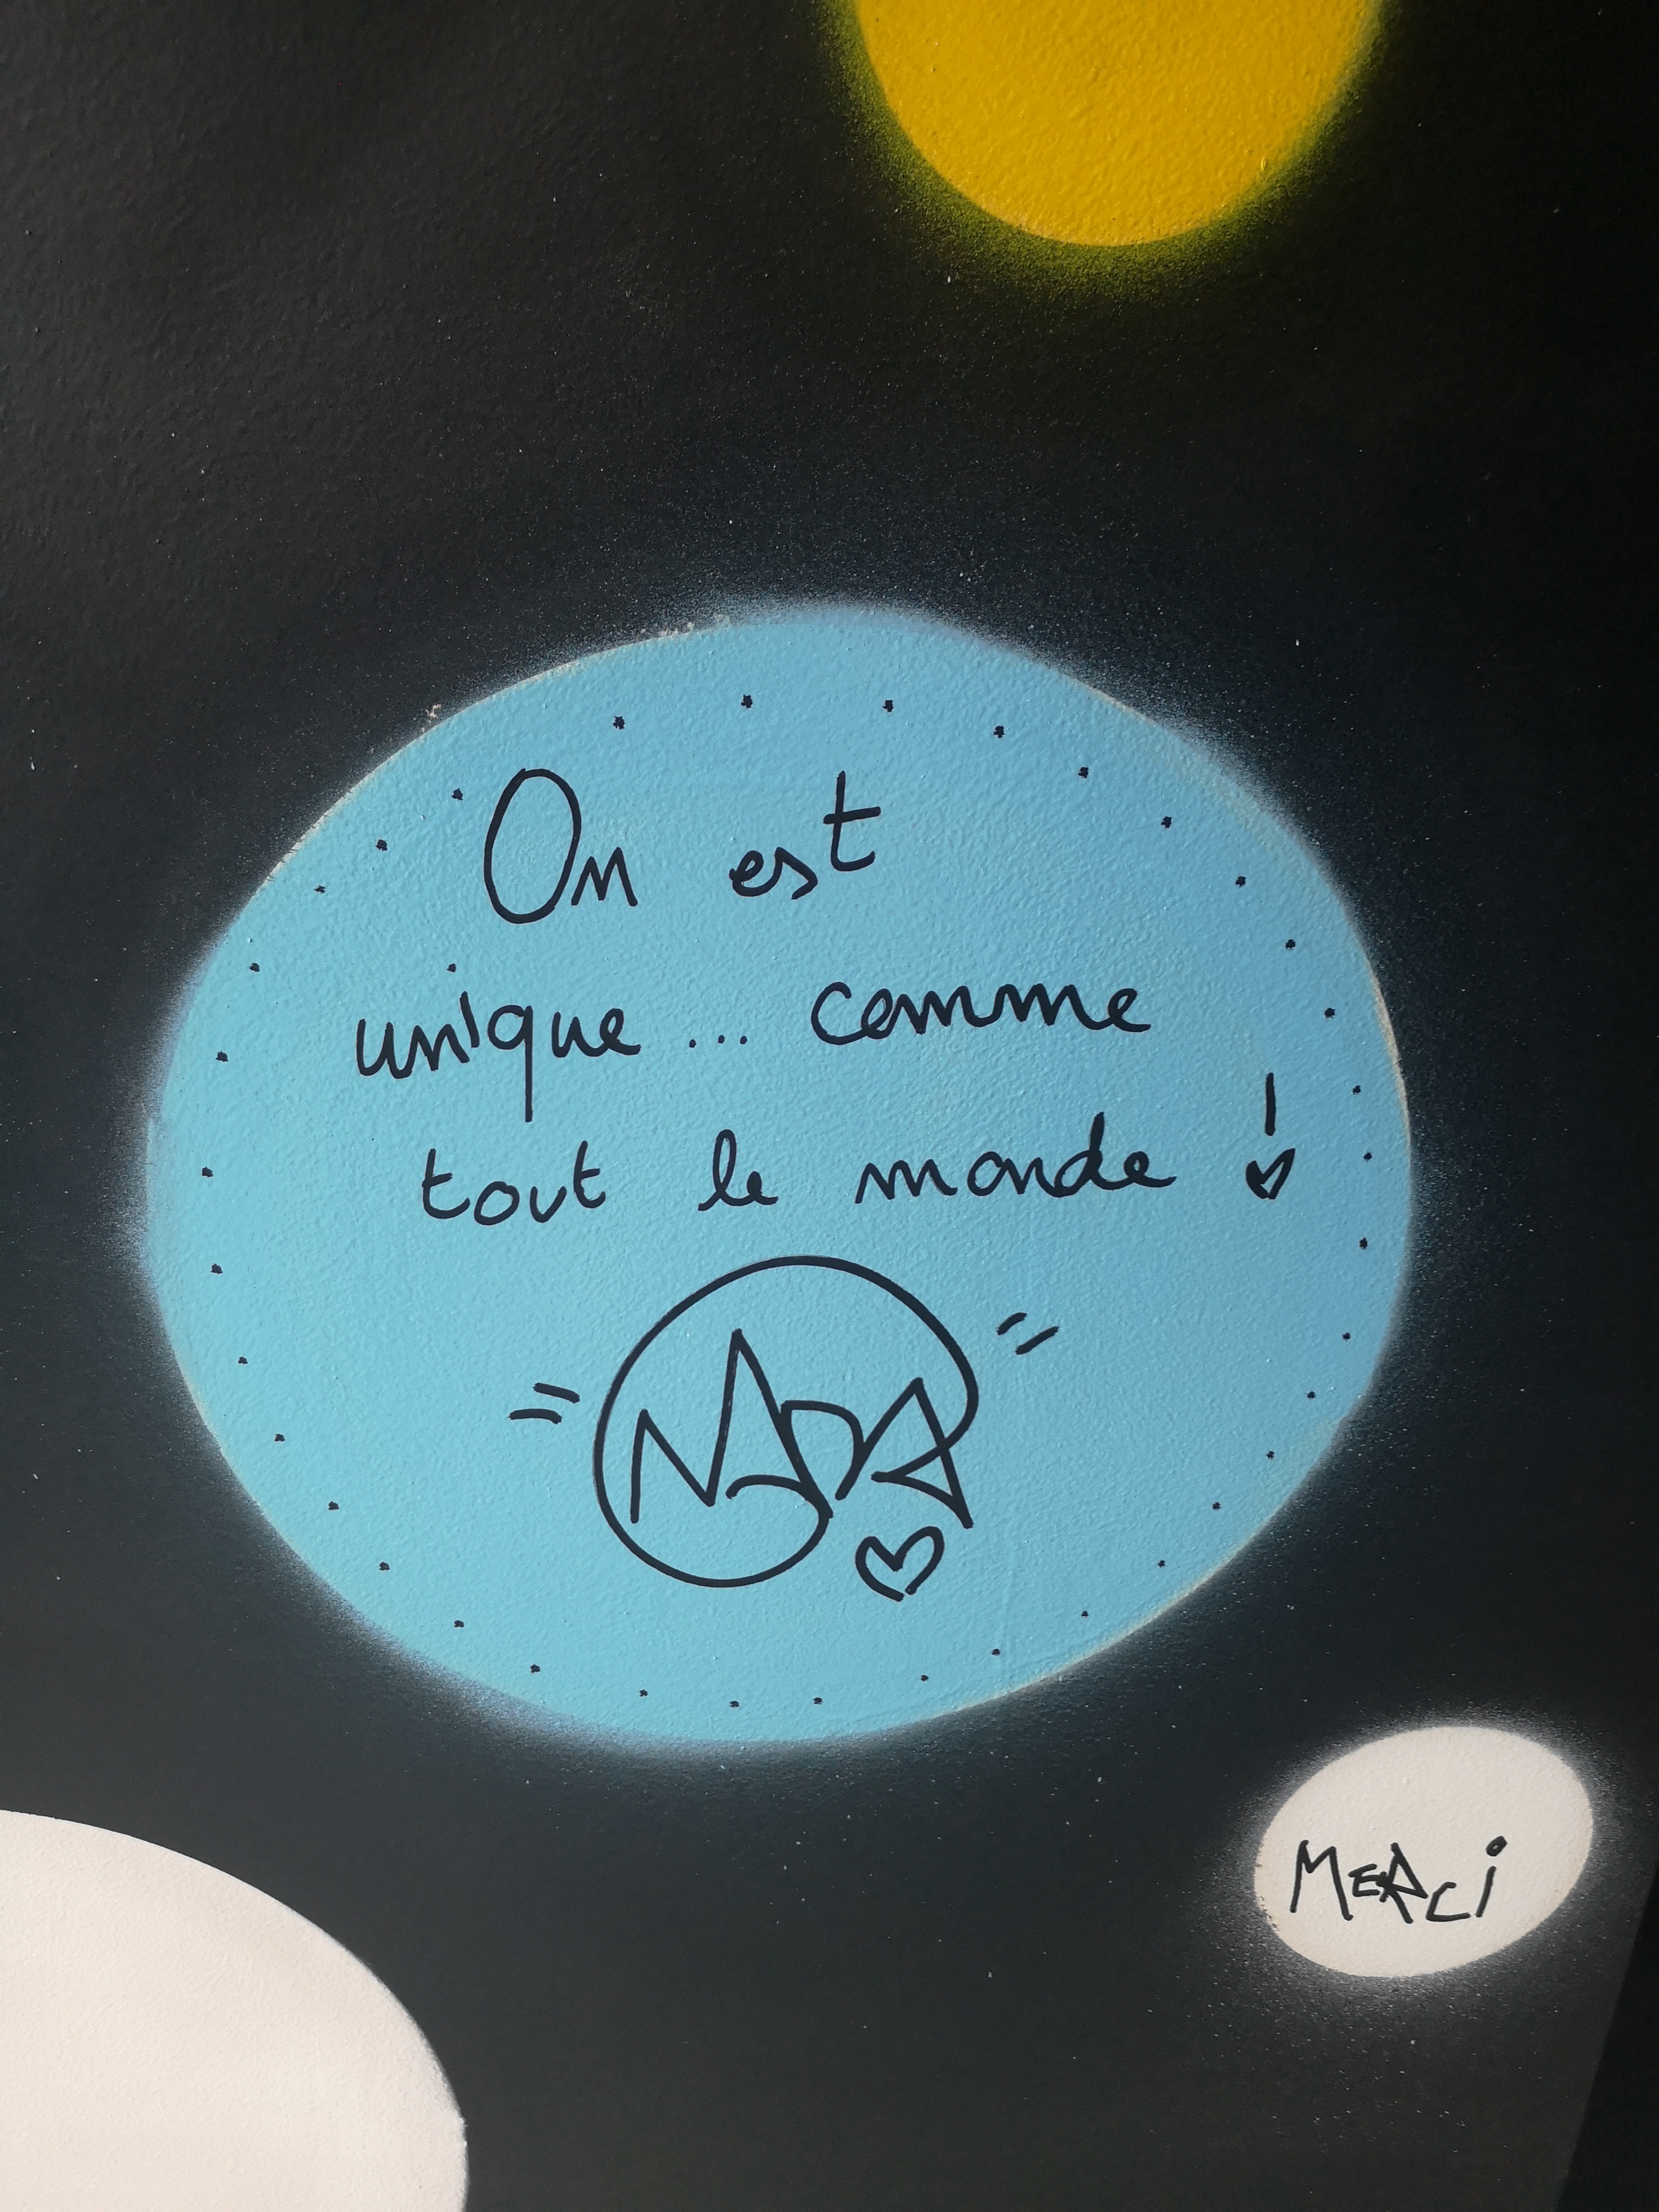 On est
unique... comme
tout le monde !
MERCi